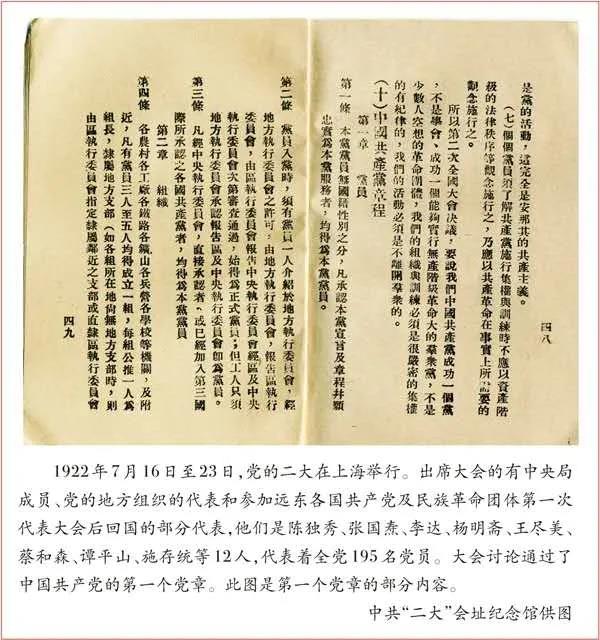 是黨的活動，這完全是安那其的共產主義。
（七）個個黨員須了解共產黨施行集權與訓練時不應以資產階
級的法律秩序等觀念施行之，乃應以共產革命在事實上所需要的
觀念施行之。
所以第二次全國大會決議，要說我們中國共產黨成功一個黨
，不是學會，成功一個能夠實行無產階級革命大的羣衆黨，不是
少數人空想的革命團體，我們的組織與訓練必須是很嚴密的集權
的有紀律的，我們的活動必須是不離開羣衆的。
（十）中國共產黨章程
第一章　黨員
第一條　本黨黨員無國籍性別之分，凡承認本黨宣言及章程并願
忠實爲本黨服務者，均得爲本黨黨員。
四八
第二條　黨員入黨時，須有黨員一人介紹於地方執行委員會，經
地方執行委員會之許可，由地方執行委員會，報告區執行
委員會，由區執行委員會報告中央執行委員會經區及中央
執行委員會次第審查通過，始得爲正式黨員；但工人只須
地方執行委員會承認報告區及中央執行委員會卽爲黨員。
第三條　凡經中央執行委員會，直接承認者，或已經加入第三國
際所承認之各國共產黨者，均得爲本黨黨員
第二章　組織
第四條　各農村各工廠各鐵路各鑛山各兵營各學校等機關，及附
近，凡有黨員三人至五人均得成立一組，每組公推一人爲
組長，隸屬地方支部（如各組所在地尚無地方支部時，則
由區執行委員會指定隸屬鄰近之支部或直隸區執行委員會
四九
1922年7月16日至23日，党的二大在上海举行。出席大会的有中央局
成员、党的地方组织的代表和参加远东各国共产党及民族革命团体第一次
代表大会后回国的部分代表，他们是陈独秀、张国焘、李达、杨明斋、王尽美、
蔡和森、谭平山、施存统等12人，代表着全党195名党员。大会讨论通过了
中国共产党的第一个党章。此图是第一个党章的部分内容。
中共“二大”会址纪念馆供图